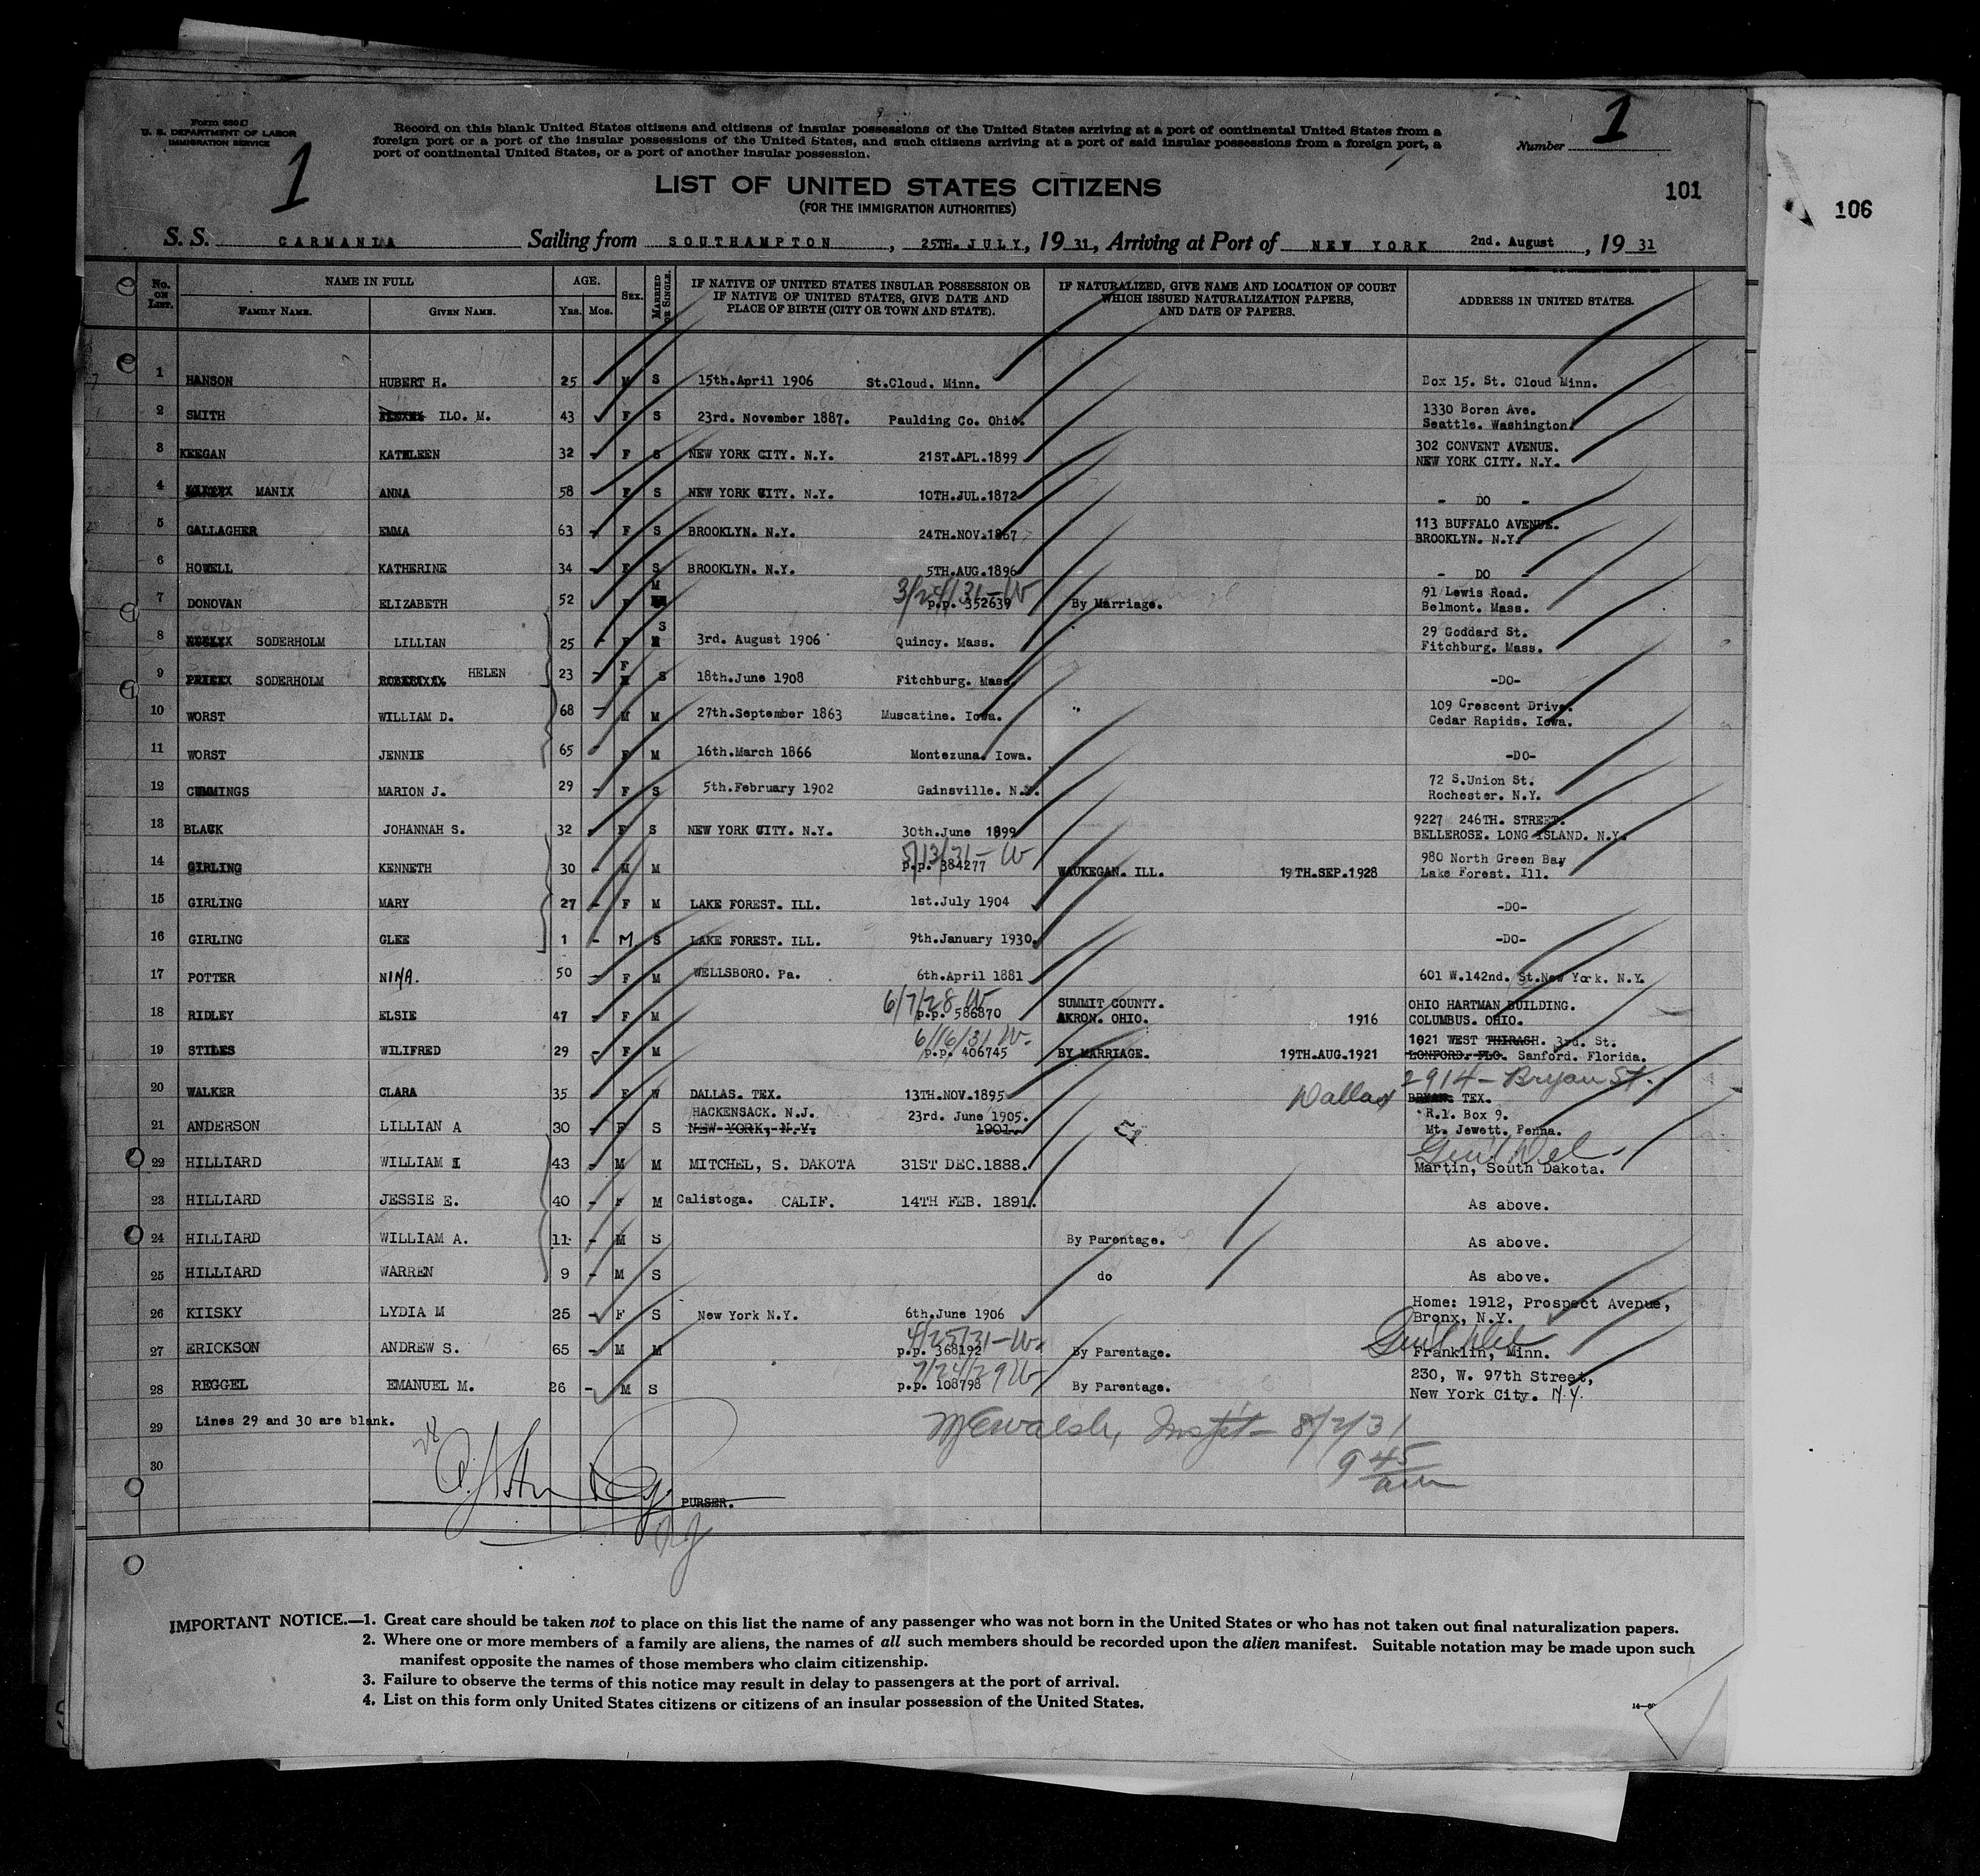 Form 630 C
U. S. DEPARTMENT OF LABOR
IMMIGRATION SERVICE
1
Record on this blank United States citizens and citizens of insular possessions of the United States arriving at a port of continental United States from a
foreign port or a port of the insular possessions of the United States, and such citizens arriving at a port of said insular possessions from a foreign port, a
port of continental United States, or a port of another insular possession.
Number 1
LIST OF UNITED STATES CITIZENS
(FOR THE IMMIGRATION AUTHORITIES)
101
106
S. S. CARMANIA Sailing from SOUTHAMPTON, 25TH. JULY, 1931, Arriving at Port of NEW YORK 2nd. August, 19 31
No. ON LIST. NAME IN FULL AGE. SEX. MARRIED OR SINGLE. IF NATIVE OF UNITED STATES INSULAR POSSESSION OR IF NATIVE OF UNITED STATES, GIVE DATE AND PLACE OF BIRTH (CITY OR TOWN AND STATE). IF NATURALIZED, GIVE NAME AND LOCATION OF COURT WHICH ISSUED NATURALIZATION PAPERS, AND DATE OF PAPERS. ADDRESS IN UNITED STATES.
FAMILY NAME. GIVEN NAME. Yrs. Mos.
1 HANSON HUBERT H. 25 - M S 15th.April 1906 St.Cloud. Minn. Box 15. St. Cloud Minn.
2 SMITH ILO. M. 43 F S 23rd. November 1887. Paulding Co. Ohio. 1330 Boren Ave.
Seattle. Washington.
3 KEEGAN KATHLEEN 32 - F S NEW YORK CITY. N.Y. 21ST.APL.1899 302 CONVENT AVENUE.
NEW YORK CITY. N.Y.
4 MANIX ANNA 58 - F S NEW YORK CITY. N.Y. 10TH.JUL.1872 - DO -
5 GALLAGHER EMMA 63 - F S BROOKLYN. N.Y. 24TH.NOV.1867 113 BUFFALO AVENUE.
BROOKLYN. N.Y.
6 HOWELL KATHERINE 34 - F S BROOKLYN. N.Y. 5TH.AUG.1896 - DO -
7 DONOVAN ELIZABETH 52 F M 3/24/31-W
p.p. 352639 By Marriage. 91 Lewis Road.
Belmont. Mass.
8 SODERHOLM LILLIAN 25 - F S 3rd. August 1906 Quincy. Mass. 29 Goddard St.
Fitchburg. Mass.
9 SODERHOLM HELEN 23 - F S 18th.June 1908 Fitchburg. Mass. -DO-
10 WORST WILLIAM D. 68 - M M 27th.September 1863 Muscatine. Iowa. 109 Crescent Drive.
Cedar Rapids. Iowa.
11 WORST JENNIE 65 - F M 16th.March 1866 Montezuna. Iowa. -DO-
12 CUMMINGS MARION J. 29 - F S 5th.February 1902 Gainsville. N.Y. 72 S.Union St.
Rochester. N.Y.
13 BLACK JOHANNAH S. 32 - F S NEW YORK CITY. N.Y. 30th.June 1899 9227 246TH. STREET.
BELLEROSE. LONG ISLAND. N.Y.
14 GIRLING KENNETH 30 - M M 5/13/31-W
p.p. 384277 WAUKEGAN. ILL. 19TH.SEP.1928 980 North Green Bay
Lake Forest. Ill.
15 GIRLING MARY 27 - F M LAKE FOREST. ILL. 1st.July 1904 -DO-
16 GIRLING GLEE 1 - M S LAKE FOREST. ILL. 9th.January 1930. -DO-
17 POTTER NINA. 50 - F M WELLSBORO. Pa. 6th.April 1881 601 W.142nd. St.New York. N.Y.
18 RIDLEY ELSIE 47 - F M 6/7/28 W
p.p. 586870 SUMMIT COUNTY.
AKRON. OHIO. 1916 OHIO HARTMAN BUILDING.
COLUMBUS. OHIO.
19 STILES WILIFRED 29 - F M 6/16/31 W-
p.p. 406745 BY MARRIAGE. 19TH.AUG.1921 1021 WEST THIRASH. 3rd. St.
LONFORD. FLO. Sanford. Florida.
20 WALKER CLARA 35 - F W DALLAS. TEX. 13TH.NOV.1895 2914 - Bryan St.
Dallas BRYAN. TEX.
21 ANDERSON LILLIAN A 30 - F S HACKENSACK. N.J. 23rd. June 1905.
NEW YORK, N.Y. 1901. R.1. Box 9.
Mt. Jewett. Penna.
22 HILLIARD WILLIAM I 43 - M M MITCHEL, S. DAKOTA 31ST DEC.1888. Gen'l Del.
Martin, South Dakota.
23 HILLIARD JESSIE E. 40 - F M Calistoga. CALIF. 14TH FEB. 1891. As above.
24 HILLIARD WILLIAM A. 11 - M S By Parentage. As above.
25 HILLIARD WARREN 9 - M S do As above.
26 KIISKY LYDIA M 25 - F S New York N.Y. 6th.June 1906 Home: 1912, Prospect Avenue,
Bronx, N.Y.
27 ERICKSON ANDREW S. 65 - M M 4/25/31-W-
p.p. 368192 By Parentage. Gen'l Del
Franklin, Minn.
28 REGGEL EMANUEL M. 26 - M S 7/24/29 W
p.p. 108798 By Parentage. 230, W. 97th Street,
New York City. N.Y.
29 Lines 29 and 30 are blank.
McWalsh, Inspt- 8/2/31
30 9 45 am
PURSER.
IMPORTANT NOTICE.—1. Great care should be taken not to place on this list the name of any passenger who was not born in the United States or who has not taken out final naturalization papers.
2. Where one or more members of a family are aliens, the names of all such members should be recorded upon the alien manifest. Suitable notation may be made upon such
manifest opposite the names of those members who claim citizenship.
3. Failure to observe the terms of this notice may result in delay to passengers at the port of arrival.
4. List on this form only United States citizens or citizens of an insular possession of the United States.